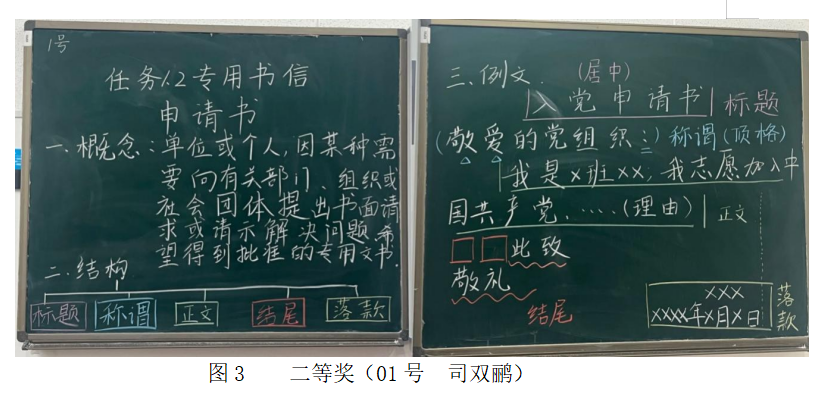 1号
任务1.2专用书信
申请书
一、概念：单位或个人，因某种需
要向有关部门、组织或
社会团体提出书面请
求或请示解决问题，希
望得到批准的专用文书.
二、结构
标题 称谓 正文 结尾 落款
三、例文.（居中）
入党申请书 标题
（敬爱的党组织：）称谓（顶格）
我是×班××，我志愿加入中
国共产党，……（理由） 正文
此致
敬礼
结尾
×××
××××年×月×日
落款
图3 二等奖（01号 司双鹂）